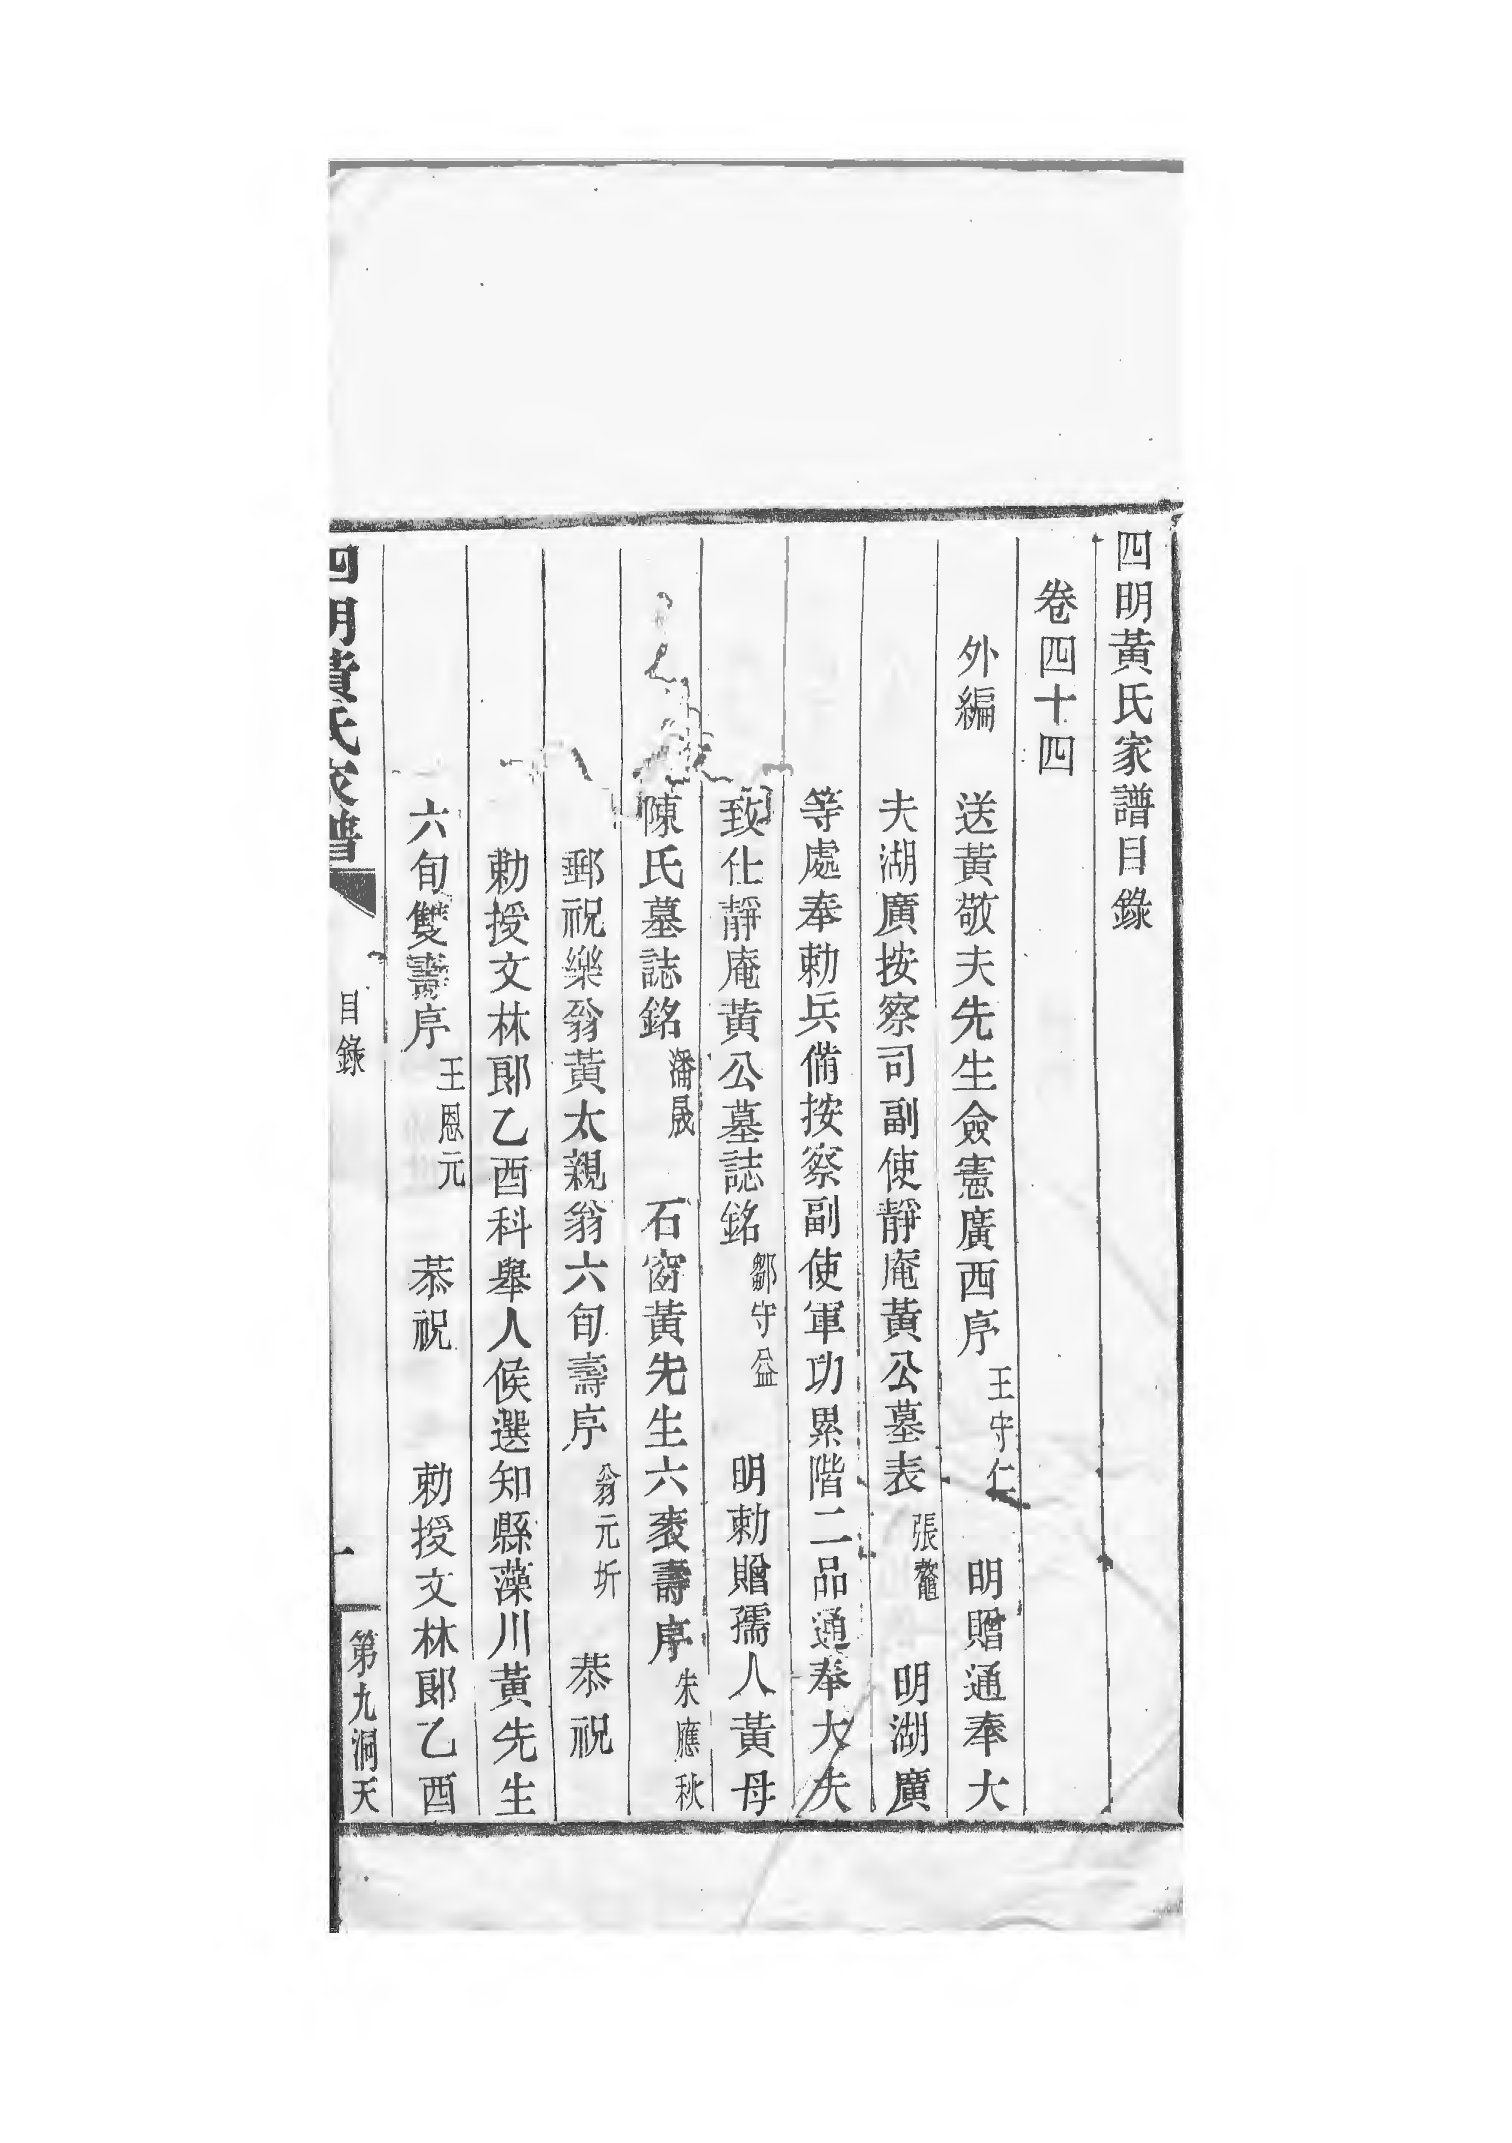 四明黃氏家譜目錄
卷四十四
外編　送黃敬夫先生僉憲廣西序　王守仁　明贈通奉大
夫湖廣按察司副使靜庵黃公墓表　張鰲　明湖廣
等處奉勅兵備按察副使軍功累階二品通奉大夫
致仕靜庵黃公墓誌銘　鄒守益　明勅贈孺人黃母
陳氏墓誌銘　潘晟　石窗黃先生六袠壽序　朱應秋
郵祝樂翁黃太親翁六旬壽序　翁元圻　恭祝
勅授文林郎乙酉科舉人候選知縣藻川黃先生
六旬雙壽序　王恩元　恭祝　勅授文林郎乙酉
四明黃氏家譜　目錄　一　第九洞天